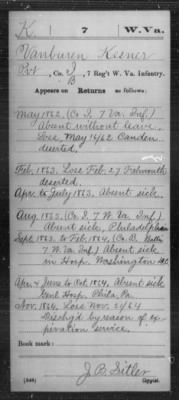 K. 7 W.Va.
Vanburen Kesner
Pvt, Co. I, 7 Reg't W. Va. Infantry.
B
Appears on Returns as follows:
May 1862. (Co. I, 7 Va. Inf.)
Absent without leave.
Loss May 16/62 Camden
deserted.
Feb. 1863. Loss Feb. 27 Falmouth
deserted.
Apr. to July 1863. Absent sick.
Aug. 1863. (Co. I, 7 W. Va. Inf.)
Absent sick, Philadelphia
Sept 1863. to Feb. 1864. (Co. B,
7 W. Va. Inf.) Absent sick
in Hosp. Washington DC
Apr. & June to Oct. 1864. Absent sick
Genl Hosp. Phila. Pa.
Nov. 1864. Loss Nov. 24/64
Dischg'd by reason of ex-
piration service.
Book mark:
J. B. Sitler
(546) Copyist.